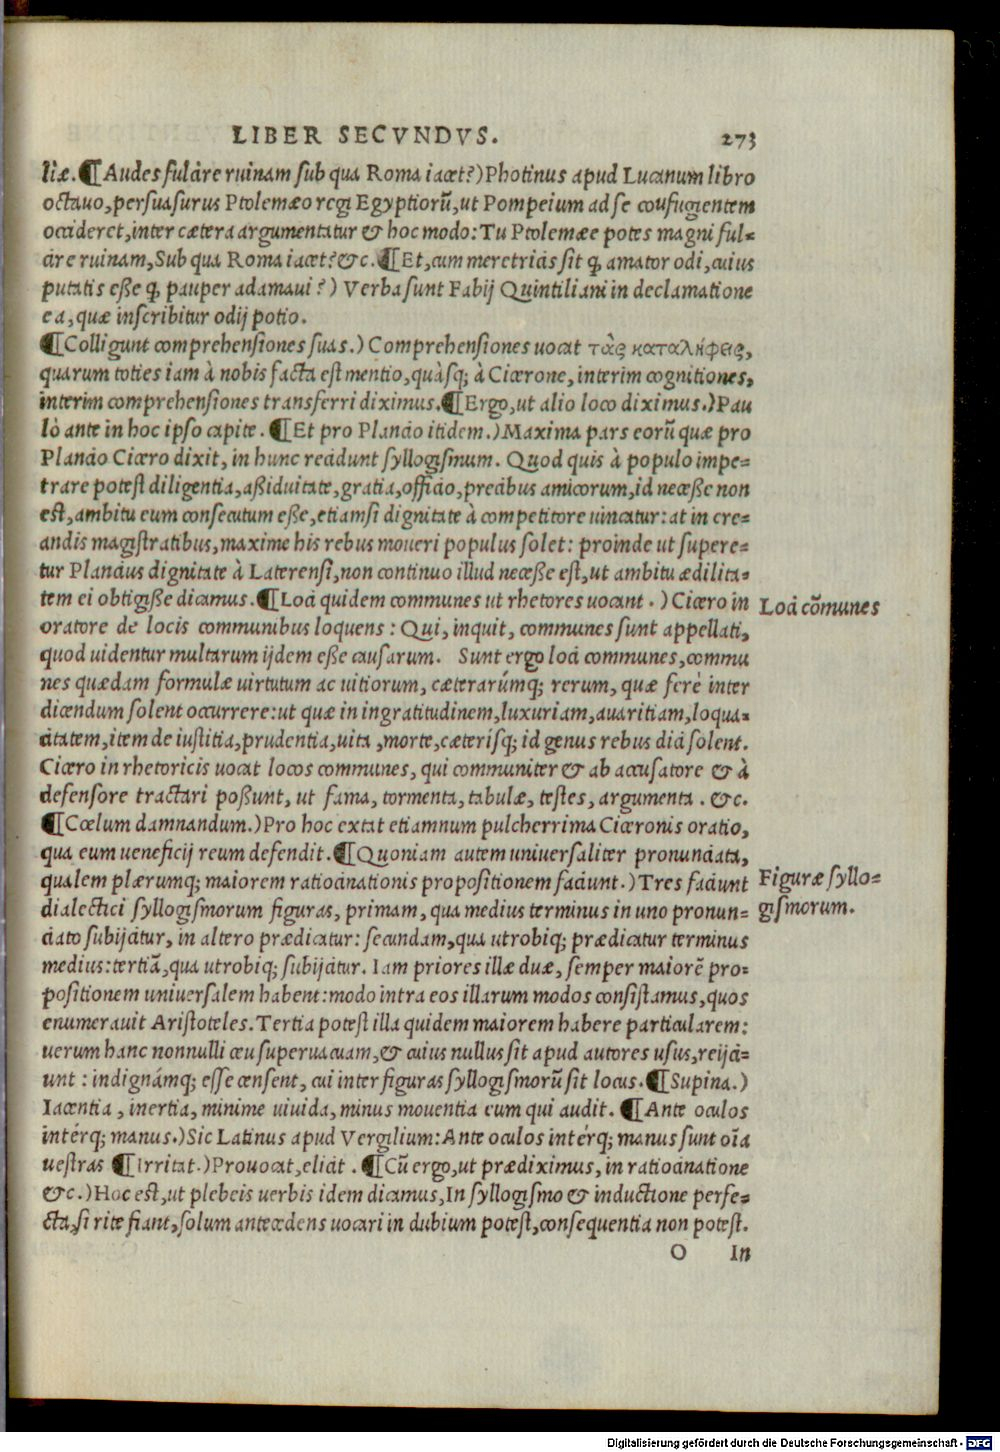 LIBER SECVNDVS. 273
liæ. ¶ Audes fulcire ruinam sub qua Roma iacet?) Photinus apud Lucanum libro
octauo, persuasurus Ptolemæo regi Egyptiorũ, ut Pompeium ad se coufugientem
occideret, inter cætera argumentatur & hoc modo: Tu Ptolemæe potes magni ful-
cire ruinam, Sub qua Roma iacet? &c. ¶ Et, cum meretricis sit ꝙ amator odi, cuius
putatis eße ꝙ pauper adamaui?) Verba sunt Fabij Quintiliani in declamatione
ea, quæ inscribitur odij potio.
¶ Colligunt comprehensiones suas.) Comprehensiones uocat τὰς καταλήψεις,
quarum toties iam à nobis facta est mentio, quàsq; à Cicerone, interim cognitiones,
interim comprehensiones transferri diximus. ¶ Ergo, ut alio loco diximus.) Pau
lò ante in hoc ipso capite. ¶ Et pro Plancio itidem.) Maxima pars eorũ quæ pro
Plancio Cicero dixit, in hunc recidunt syllogismum. Quod quis à populo impe-
trare potest diligentia, aßiduitate, gratia, officio, precibus amicorum, id neceße non
est, ambitu eum consecutum eße, etiamsi dignitate à competitore uincatur: at in cre-
andis magistratibus, maxime his rebus moueri populus solet: proinde ut supere-
tur Plancius dignitate à Laterensi, non continuo illud neceße est, ut ambitu ædilita-
tem ei obtigiße dicamus. ¶ Loci quidem communes ut rhetores uocant.) Cicero in
Loci cõmunes
oratore de locis communibus loquens: Qui, inquit, communes sunt appellati,
quod uidentur multarum ijdem eße causarum. Sunt ergo loci communes, commu
nes quædam formulæ uirtutum ac uitiorum, cæterarúmq; rerum, quæ ferè inter
dicendum solent occurrere: ut quæ in ingratitudinem, luxuriam, auaritiam, loqua-
citatem, item de iustitia, prudentia, uita, morte, cæterisq; id genus rebus dici solent.
Cicero in rhetoricis uocat locos communes, qui communiter & ab accusatore & à
defensore tractari poßunt, ut fama, tormenta, tabulæ, testes, argumenta. &c.
¶ Cœlum damnandum.) Pro hoc extat etiamnum pulcherrima Ciceronis oratio,
qua eum ueneficij reum defendit. ¶ Quoniam autem uniuersaliter pronunciata,
qualem plærumq; maiorem ratiocinationis propositionem faciunt.) Tres faciunt
Figuræ syllo-
gismorum.
dialectici syllogismorum figuras, primam, qua medius terminus in uno pronun-
ciato subijcitur, in altero prædicatur: secundam, qua utrobiq; prædicatur terminus
medius: tertiã, qua utrobiq; subijcitur. Iam priores illæ duæ, semper maiorẽ pro-
positionem uniuersalem habent: modo intra eos illarum modos consistamus, quos
enumerauit Aristoteles. Tertia potest illa quidem maiorem habere particularem:
uerum hanc nonnulli ceu superuacuam, & cuius nullus sit apud autores usus, reijci-
unt: indignámq; esse censent, cui inter figuras syllogismorũ sit locus. ¶ Supina.)
Iacentia, inertia, minime uiuida, minus mouentia eum qui audit. ¶ Ante oculos
intérq; manus.) Sic Latinus apud Vergilium: Ante oculos intérq; manus sunt oĩa
uestras ¶ Irritat.) Prouocat, elicit. ¶ Cũ ergo, ut prædiximus, in ratiocinatione
&c.) Hoc est, ut plebeis uerbis idem dicamus, In syllogismo & inductione perfe-
cta, si rite fiant, solum antecedens uocari in dubium potest, consequentia non potest.
O In
Digitalisierung gefördert durch die Deutsche Forschungsgemeinschaft - DFG